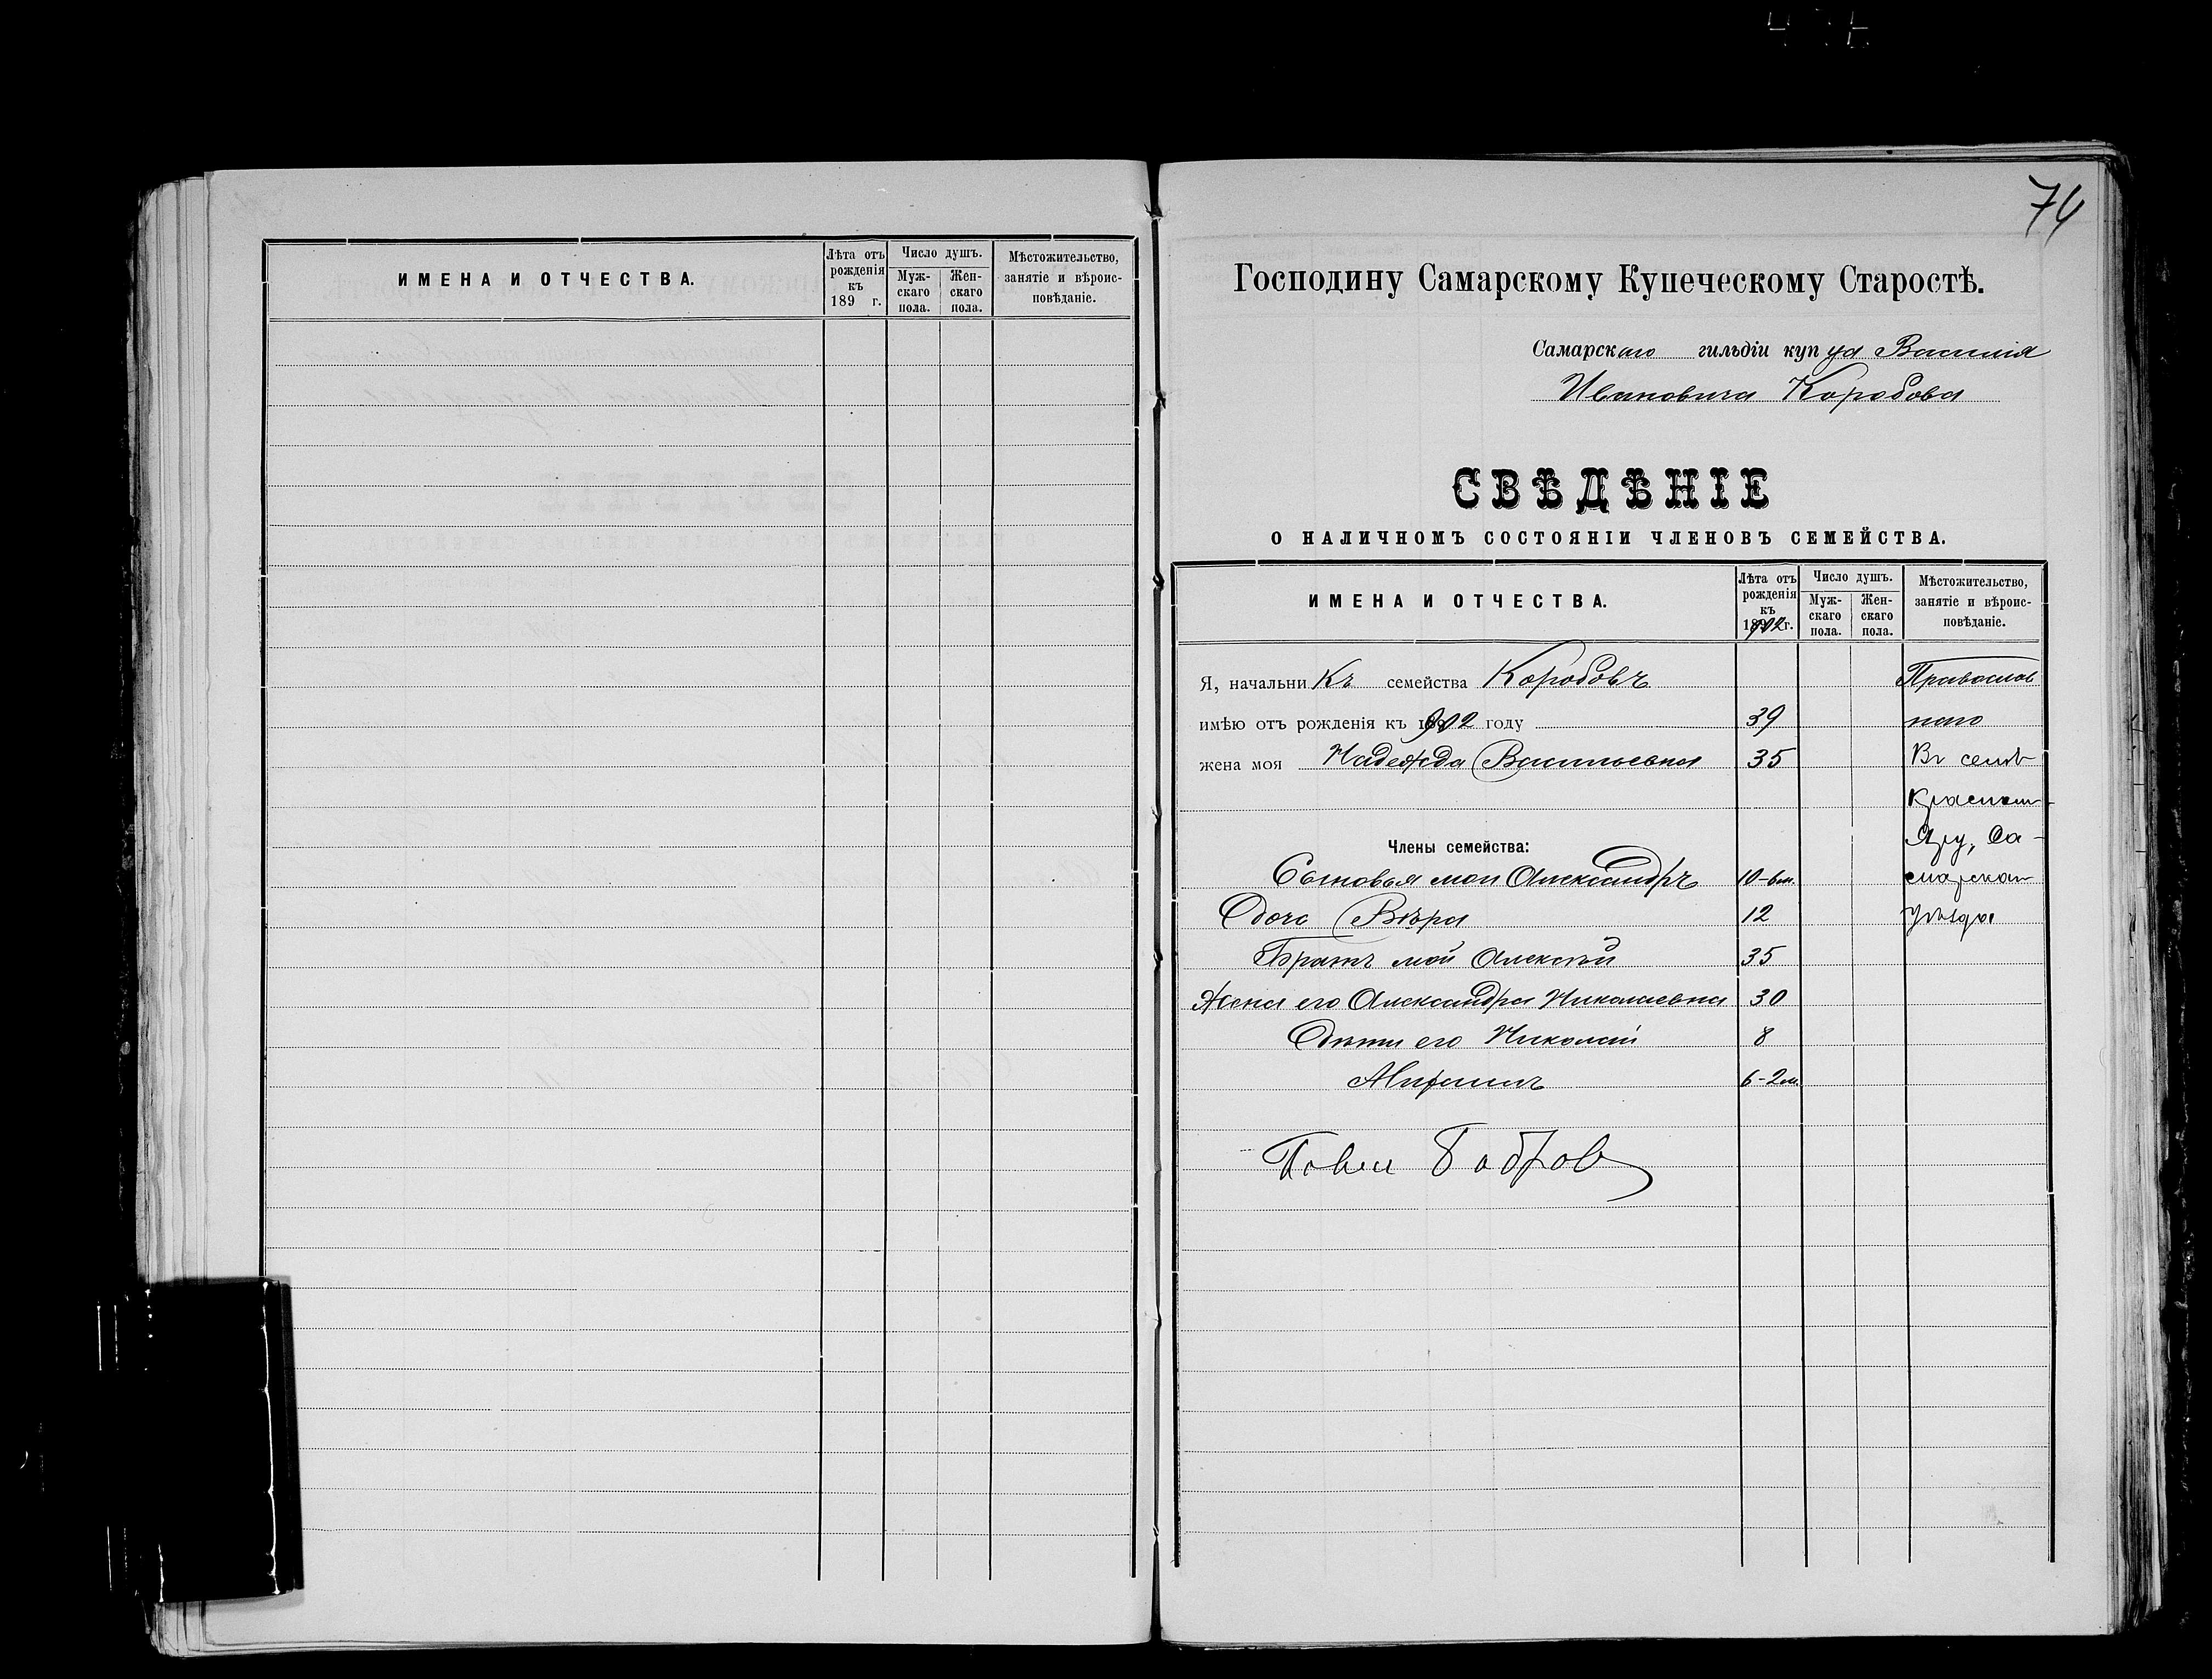 ИМЕНА И ОТЧЕСТВА.
Лѣта отъ рожденія къ 189 г.
Число душъ.
Мужскаго пола.
Женскаго пола.
Мѣстожительство, занятіе и вѣроисповѣданіе.
74
Господину Самарскому Купеческому Старостѣ.
Самарскаго гильдіи купца Василія
Ивановича Коробова
СВѢДѢНІЕ
О НАЛИЧНОМЪ СОСТОЯНІИ ЧЛЕНОВЪ СЕМЕЙСТВА.
ИМЕНА И ОТЧЕСТВА.
Лѣта отъ
рожденія
къ
1902 г.
Число душъ.
Муж-
скаго
пола.
Жен-
скаго
пола.
Мѣстожительство,
занятіе и вѣроис-
повѣданіе.
Я, начальникъ семейства Коробовъ Православ
имѣю отъ рожденія къ 1902 году 39 наго
жена моя Надежда Васильевна 35 Въ селѣ
Красном
Члены семейства: Яру, Са-
Сыновья мои Александръ 10-6м. марскаго
Дочь Вѣра 12 уѣзда
Братъ мой Алексѣй 35
Жена его Александра Николаевна 30
Дѣти его Николай 8
6-2м.
Бобров